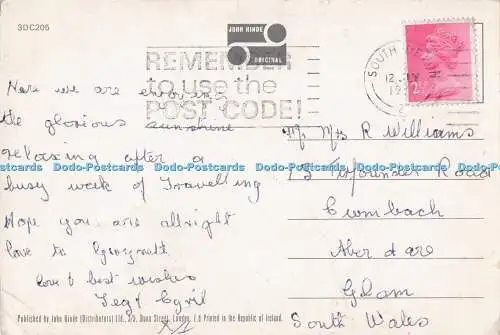 3DC205
JOHN HINDE
ORIGINAL
REMEMBER
to use the
POST CODE!
SOUTH DEVON
12
2½
Here we are enjoying
the glorious sunshine
relaxing after a
busy week of Travelling
Hope you are allright
love to
love & best wishes
Cyril
Mr Mrs R Williams
Road
Cwmbach
Aberdare
Glam
South Wales
Dodo-Postcards Dodo-Postcards Dodo-Postcards Dodo-Postcards Dodo-Postcards Dodo-Postcards
Published by John Hinde (Distributors) Ltd., 3/5, Dunn Street, London, E.8 Printed in the Republic of Ireland.